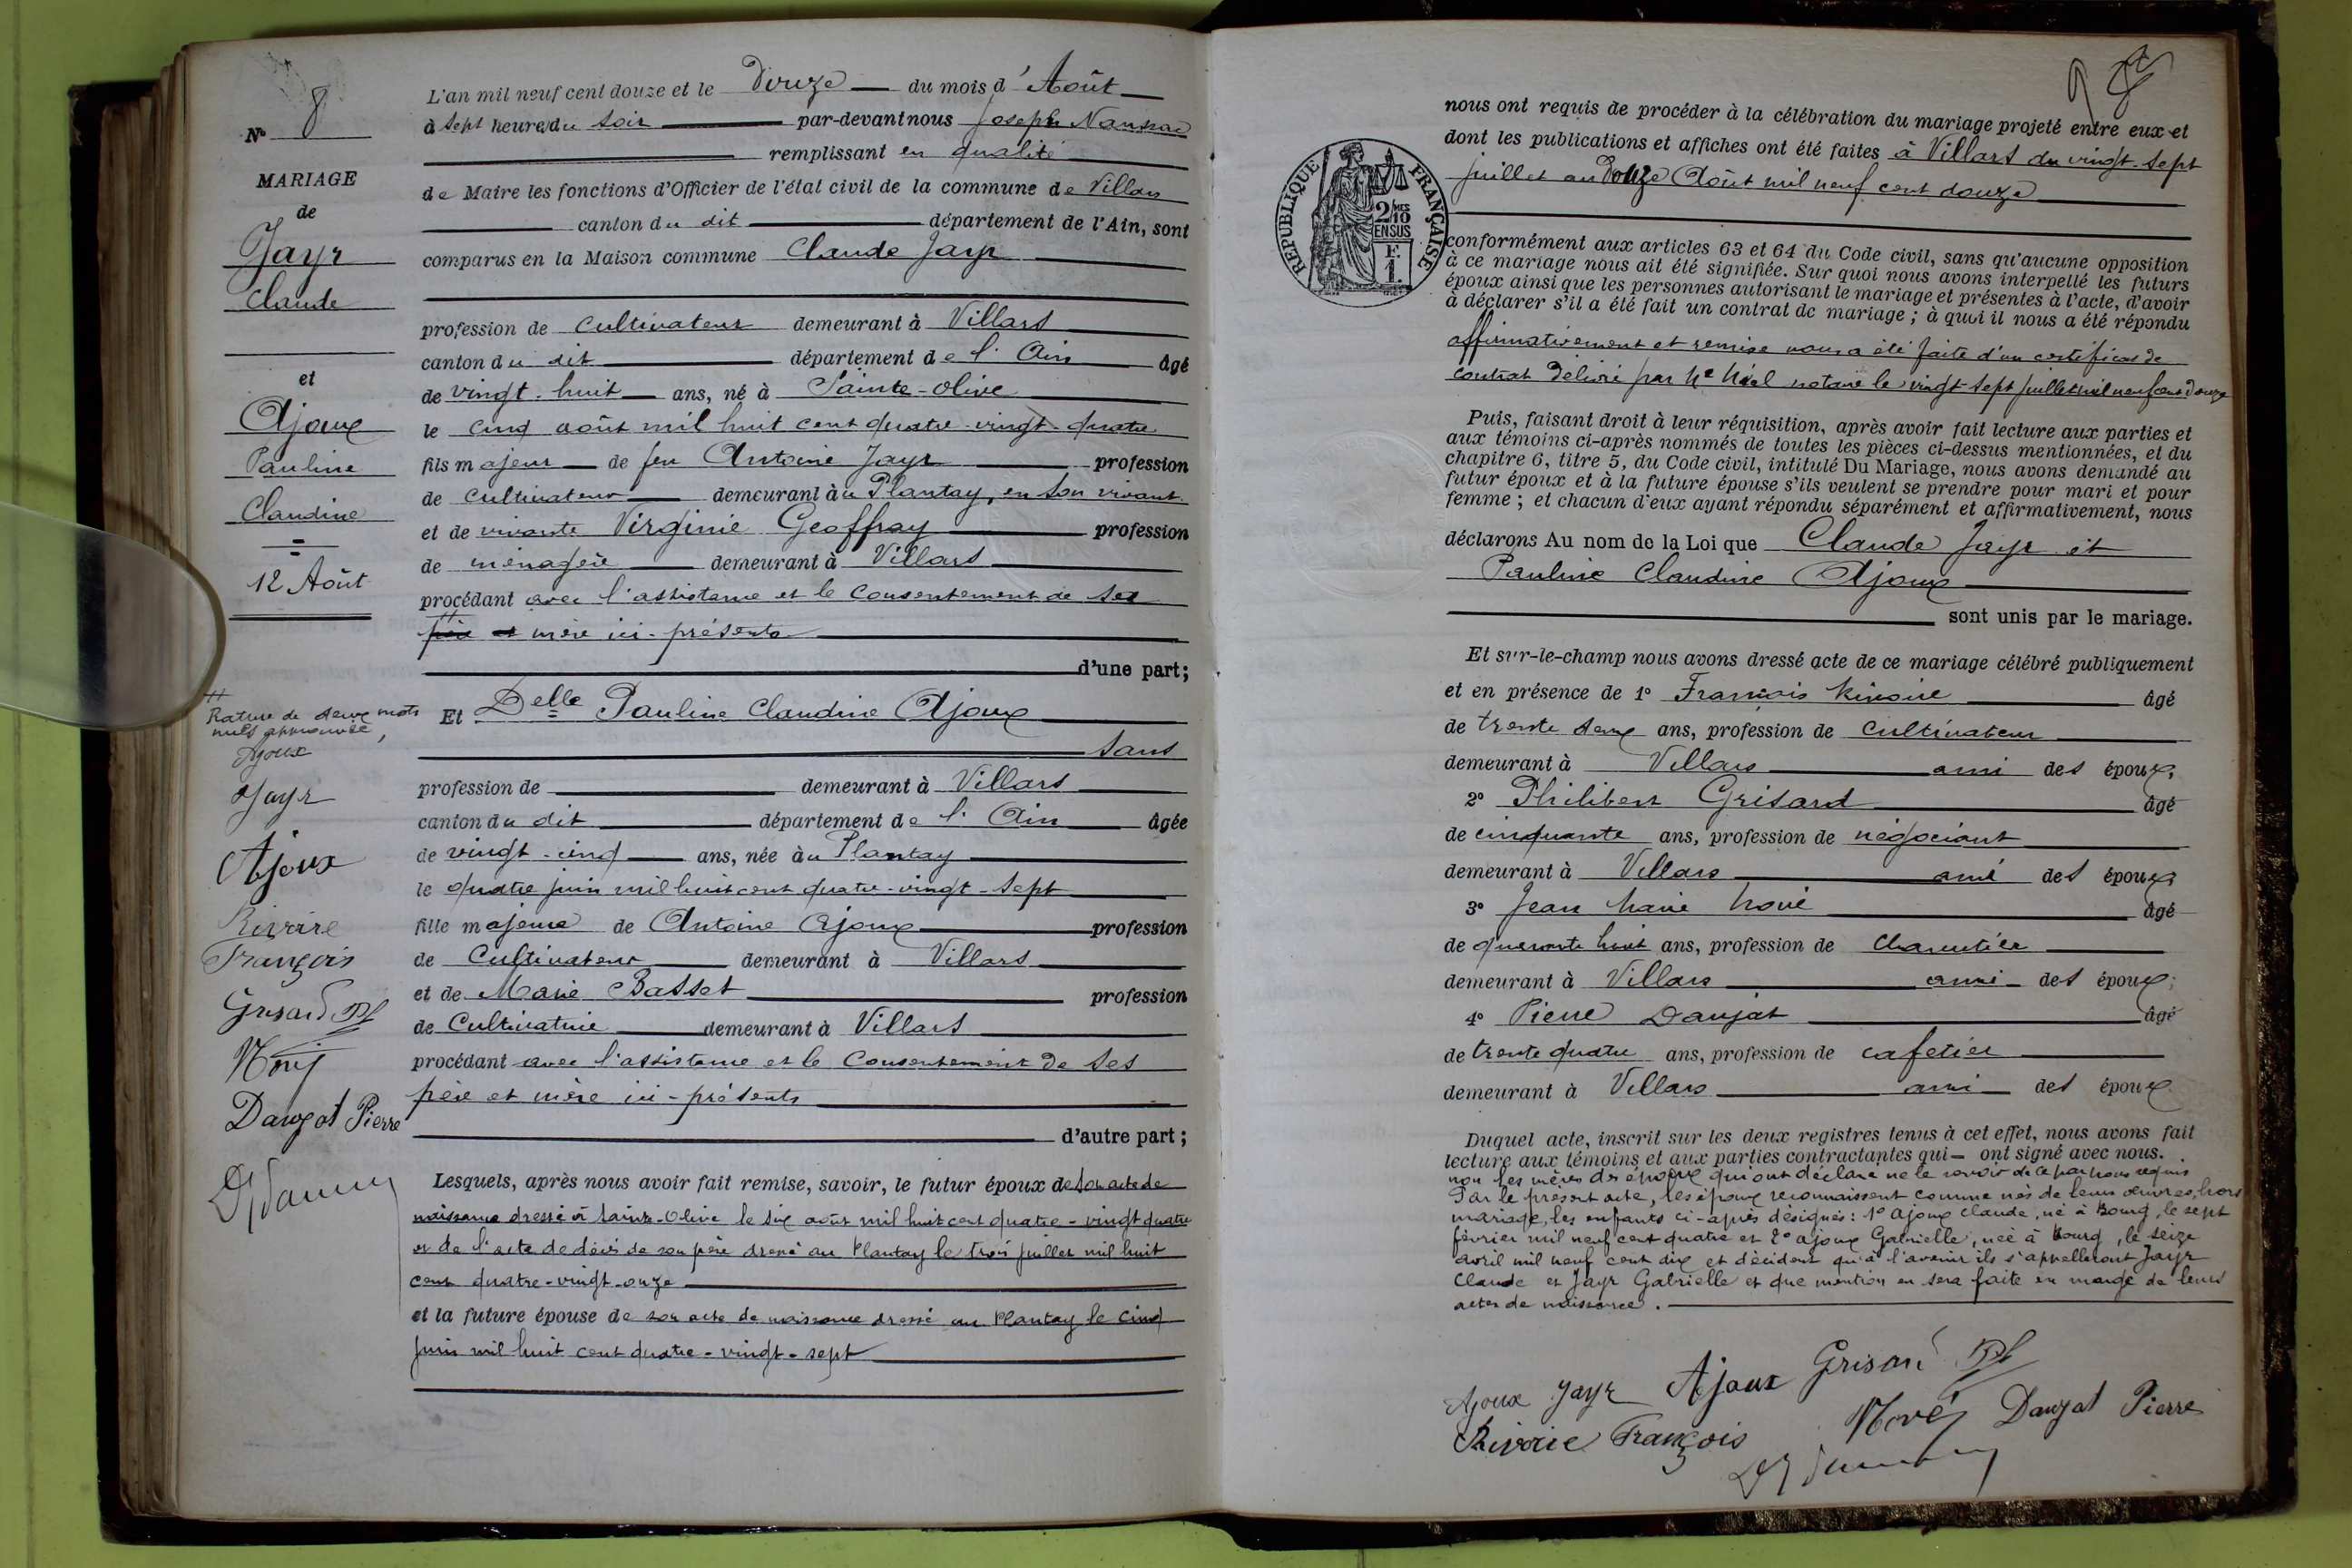 N° 8
MARIAGE
de
Jayr
Claude
et
Ajoux
Pauline
Claudine
12 Août
Rature de deux mots
nuls approuvée,
Ajoux
Jayr
Ajoux
Rivoire
François
Grisard Ph
Dangat Pierre
L'an mil neuf cent douze et le Douze du mois d'Août
à sept heures du soir par-devant nous Joseph
remplissant en qualité
de Maire les fonctions d'Officier de l'état civil de la commune de Villars
canton du dit département de l'Ain, sont
comparus en la Maison commune Claude Jayr
profession de cultivateur demeurant à Villars
canton du dit département de l'Ain âgé
de vingt-huit ans, né à Sainte-Olive
le cinq août mil huit cent quatre-vingt-quatre
fils majeur de feu Antoine Jayr profession
de cultivateur demeurant au Plantay, en son vivant
et de vivante Virginie Geoffray profession
de ménagère demeurant à Villars
procédant avec l'assistance et le consentement de ses
père et mère ici-présente
d'une part;
Et Delle Pauline Claudine Ajoux
sans
profession de demeurant à Villars
canton du dit département de l'Ain âgée
de vingt-cinq ans, née au Plantay
le quatre juin mil huit cent quatre-vingt-sept
fille majeure de Antoine Ajoux profession
de Cultivateur demeurant à Villars
et de Marie Basset profession
de Cultivatrice demeurant à Villars
procédant avec l'assistance et le consentement de ses
père et mère ici-présents
d'autre part;
Lesquels, après nous avoir fait remise, savoir, le futur époux de son acte de
naissance dressé à Sainte-Olive le six août mil huit cent quatre-vingt quatre
et de l'acte de décès de son père dressé au Plantay le trois juillet mil huit
cent quatre-vingt-onze
et la future épouse de son acte de naissance dressé au Plantay le cinq
juin mil huit cent quatre-vingt-sept
nous ont requis de procéder à la célébration du mariage projeté entre eux et
dont les publications et affiches ont été faites à Villars du vingt-sept
juillet au Douze Août mil neuf cent douze
RÉPUBLIQUE FRANÇAISE
2/10MES
EN SUS
F.
1.
conformément aux articles 63 et 64 du Code civil, sans qu'aucune opposition
à ce mariage nous ait été signifiée. Sur quoi nous avons interpellé les futurs
époux ainsi que les personnes autorisant le mariage et présentes à l'acte, d'avoir
à déclarer s'il a été fait un contrat de mariage; à quoi il nous a été répondu
affirmativement et remise nous a été faite d'un certificat de
contrat délivré par Me notaire le vingt-sept juillet mil neuf cent douze
Puis, faisant droit à leur réquisition, après avoir fait lecture aux parties et
aux témoins ci-après nommés de toutes les pièces ci-dessus mentionnées, et du
chapitre 6, titre 5, du Code civil, intitulé Du Mariage, nous avons demandé au
futur époux et à la future épouse s'ils veulent se prendre pour mari et pour
femme; et chacun d'eux ayant répondu séparément et affirmativement, nous
déclarons Au nom de la Loi que Claude Jayr et
Pauline Claudine Ajoux
sont unis par le mariage.
Et sur-le-champ nous avons dressé acte de ce mariage célébré publiquement
et en présence de 1° François Rivoire âgé
de trente deux ans, profession de cultivateur
demeurant à Villars ami des époux,
2° Philibert Grisard âgé
de cinquante ans, profession de négociant
demeurant à Villars ami des époux;
3° Jean Marie Moré âgé
de quarante huit ans, profession de Charcutier
demeurant à Villars ami des époux;
4° Pierre Danjat âgé
de trente quatre ans, profession de cafetier
demeurant à Villars ami des époux
Duquel acte, inscrit sur les deux registres tenus à cet effet, nous avons fait
lecture aux témoins et aux parties contractantes qui ont signé avec nous.
non les mères des époux qui ont déclaré ne le savoir de ce par nous requis
Par le présent acte, les époux reconnaissent comme nés de leurs œuvres, hors
mariage, les enfants ci-après désignés: 1° Ajoux Claude, né à Bourg, le sept
février mil neuf cent quatre et 2° Ajoux Gabrielle, née à Bourg, le seize
avril mil neuf cent dix et décident qu'à l'avenir ils s'appelleront Jayr
Claude et Jayr Gabrielle et que mention en sera faite en marge de leurs
actes de naissance.
Ajoux Jayr Ajoux Grisard Ph
Rivoire François Moré Dangat Pierre